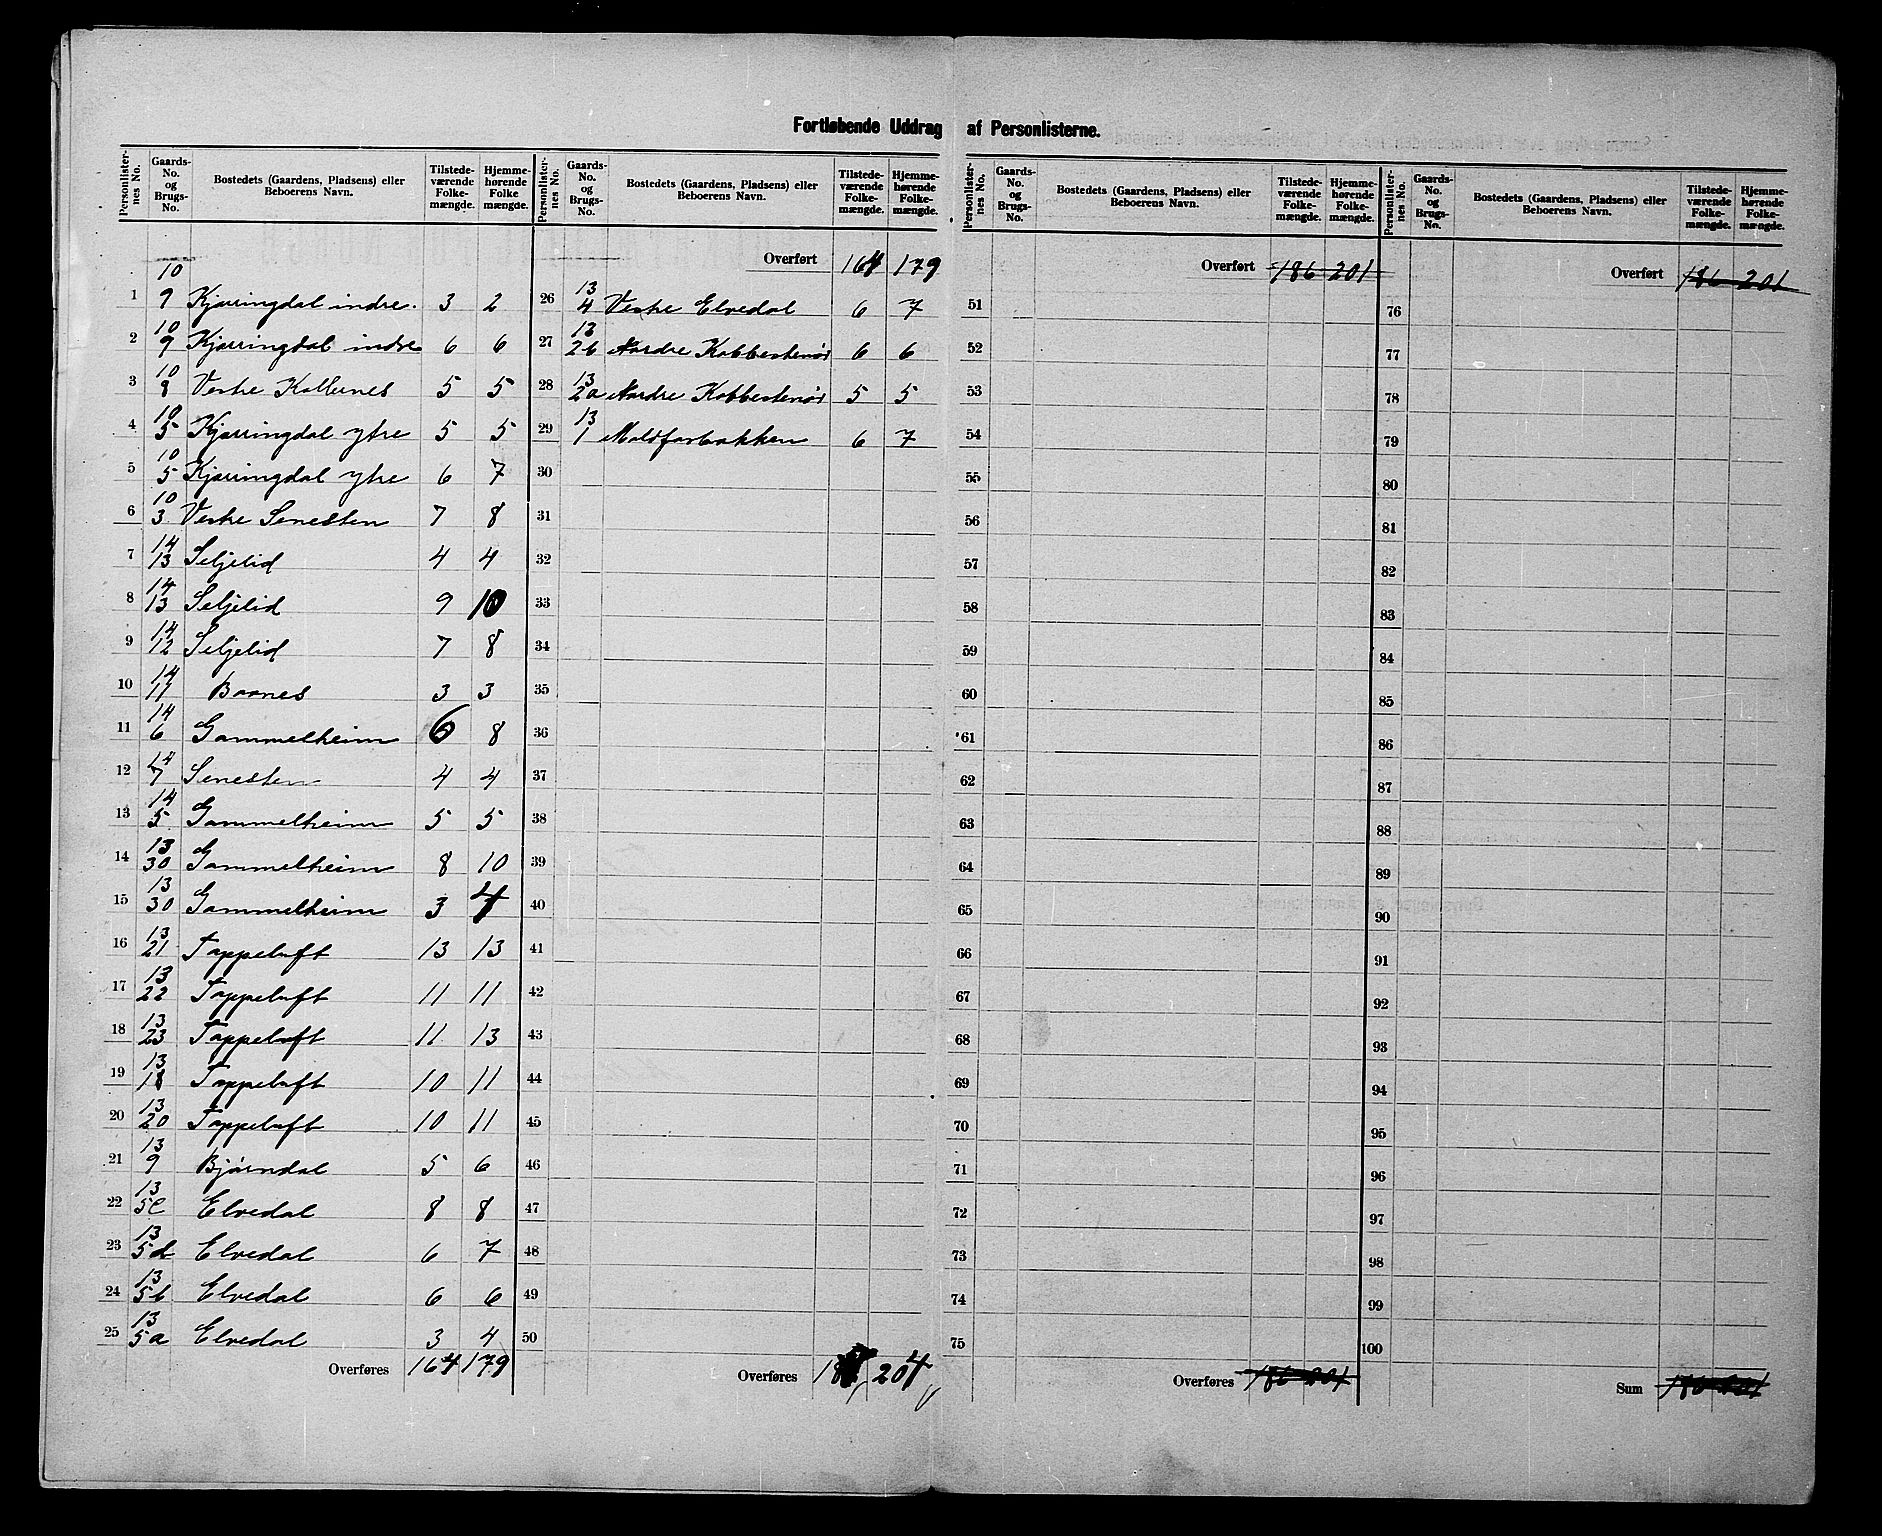 Fortløbende Uddrag af Personlisterne.
Personlisternes No. Gaards-No. og Brugs-No. Bostedets (Gaardens, Pladsens) eller Beboerens Navn. Tilstedeværende Folkemængde. Hjemmehørende Folkemængde.
1 10/9 Kjærringdal indre. 3 2
2 10/9 Kjærringdal indre 6 6
3 10/8 Vestre Kallunes 5 5
4 10/5 Kjærringdal ytre 5 5
5 10/5 Kjærringdal ytre 6 7
6 10/3 Vestre Senesten 7 8
7 14/13 Seljelid 4 4
8 14/13 Seljelid 9 10
9 14/12 Seljelid 7 8
10 14/11 Baanes 3 3
11 14/6 Gammelheim 6 8
12 14/7 Senesten 4 4
13 14/5 Gammelheim 5 5
14 13/30 Gammelheim 8 10
15 13/30 Gammelheim 3 4
16 13/21 Tappeluft 13 13
17 13/22 Tappeluft 11 11
18 13/23 Tappeluft 11 13
19 13/18 Tappeluft 10 11
20 13/20 Tappeluft 10 11
21 13/9 Bjørndal 5 6
22 13/5c Elvedal 8 8
23 13/5d Elvedal 6 7
24 13/5b Elvedal 6 6
25 13/5a Elvedal 3 4
Overføres 164 179
Personlisternes No. Gaards-No. og Brugs-No. Bostedets (Gaardens, Pladsens) eller Beboerens Navn. Tilstedeværende Folkemængde. Hjemmehørende Folkemængde.
Overført 164 179
26 13/4 Vestre Elvedal 6 7
27 13/2b Nordre Kobbestenør 6 6
28 13/2a Nordre Kobbestenør 5 5
29 13/1 6 7
30
31
32
33
34
35
36
37
38
39
40
41
42
43
44
45
46
47
48
49
50
Overføres 204
Personlisternes No. Gaards-No. og Brugs-No. Bostedets (Gaardens, Pladsens) eller Beboerens Navn. Tilstedeværende Folkemængde. Hjemmehørende Folkemængde.
Overført 186 201
51
52
53
54
55
56
57
58
59
60
61
62
63
64
65
66
67
68
69
70
71
72
73
74
75
Overføres 186 201
Personlisternes No. Gaards-No. og Brugs-No. Bostedets (Gaardens, Pladsens) eller Beboerens Navn. Tilstedeværende Folkemængde. Hjemmehørende Folkemængde.
Overført 186 201
76
77
78
79
80
81
82
83
84
85
86
87
88
89
90
91
92
93
94
95
96
97
98
99
100
Sum 186 201